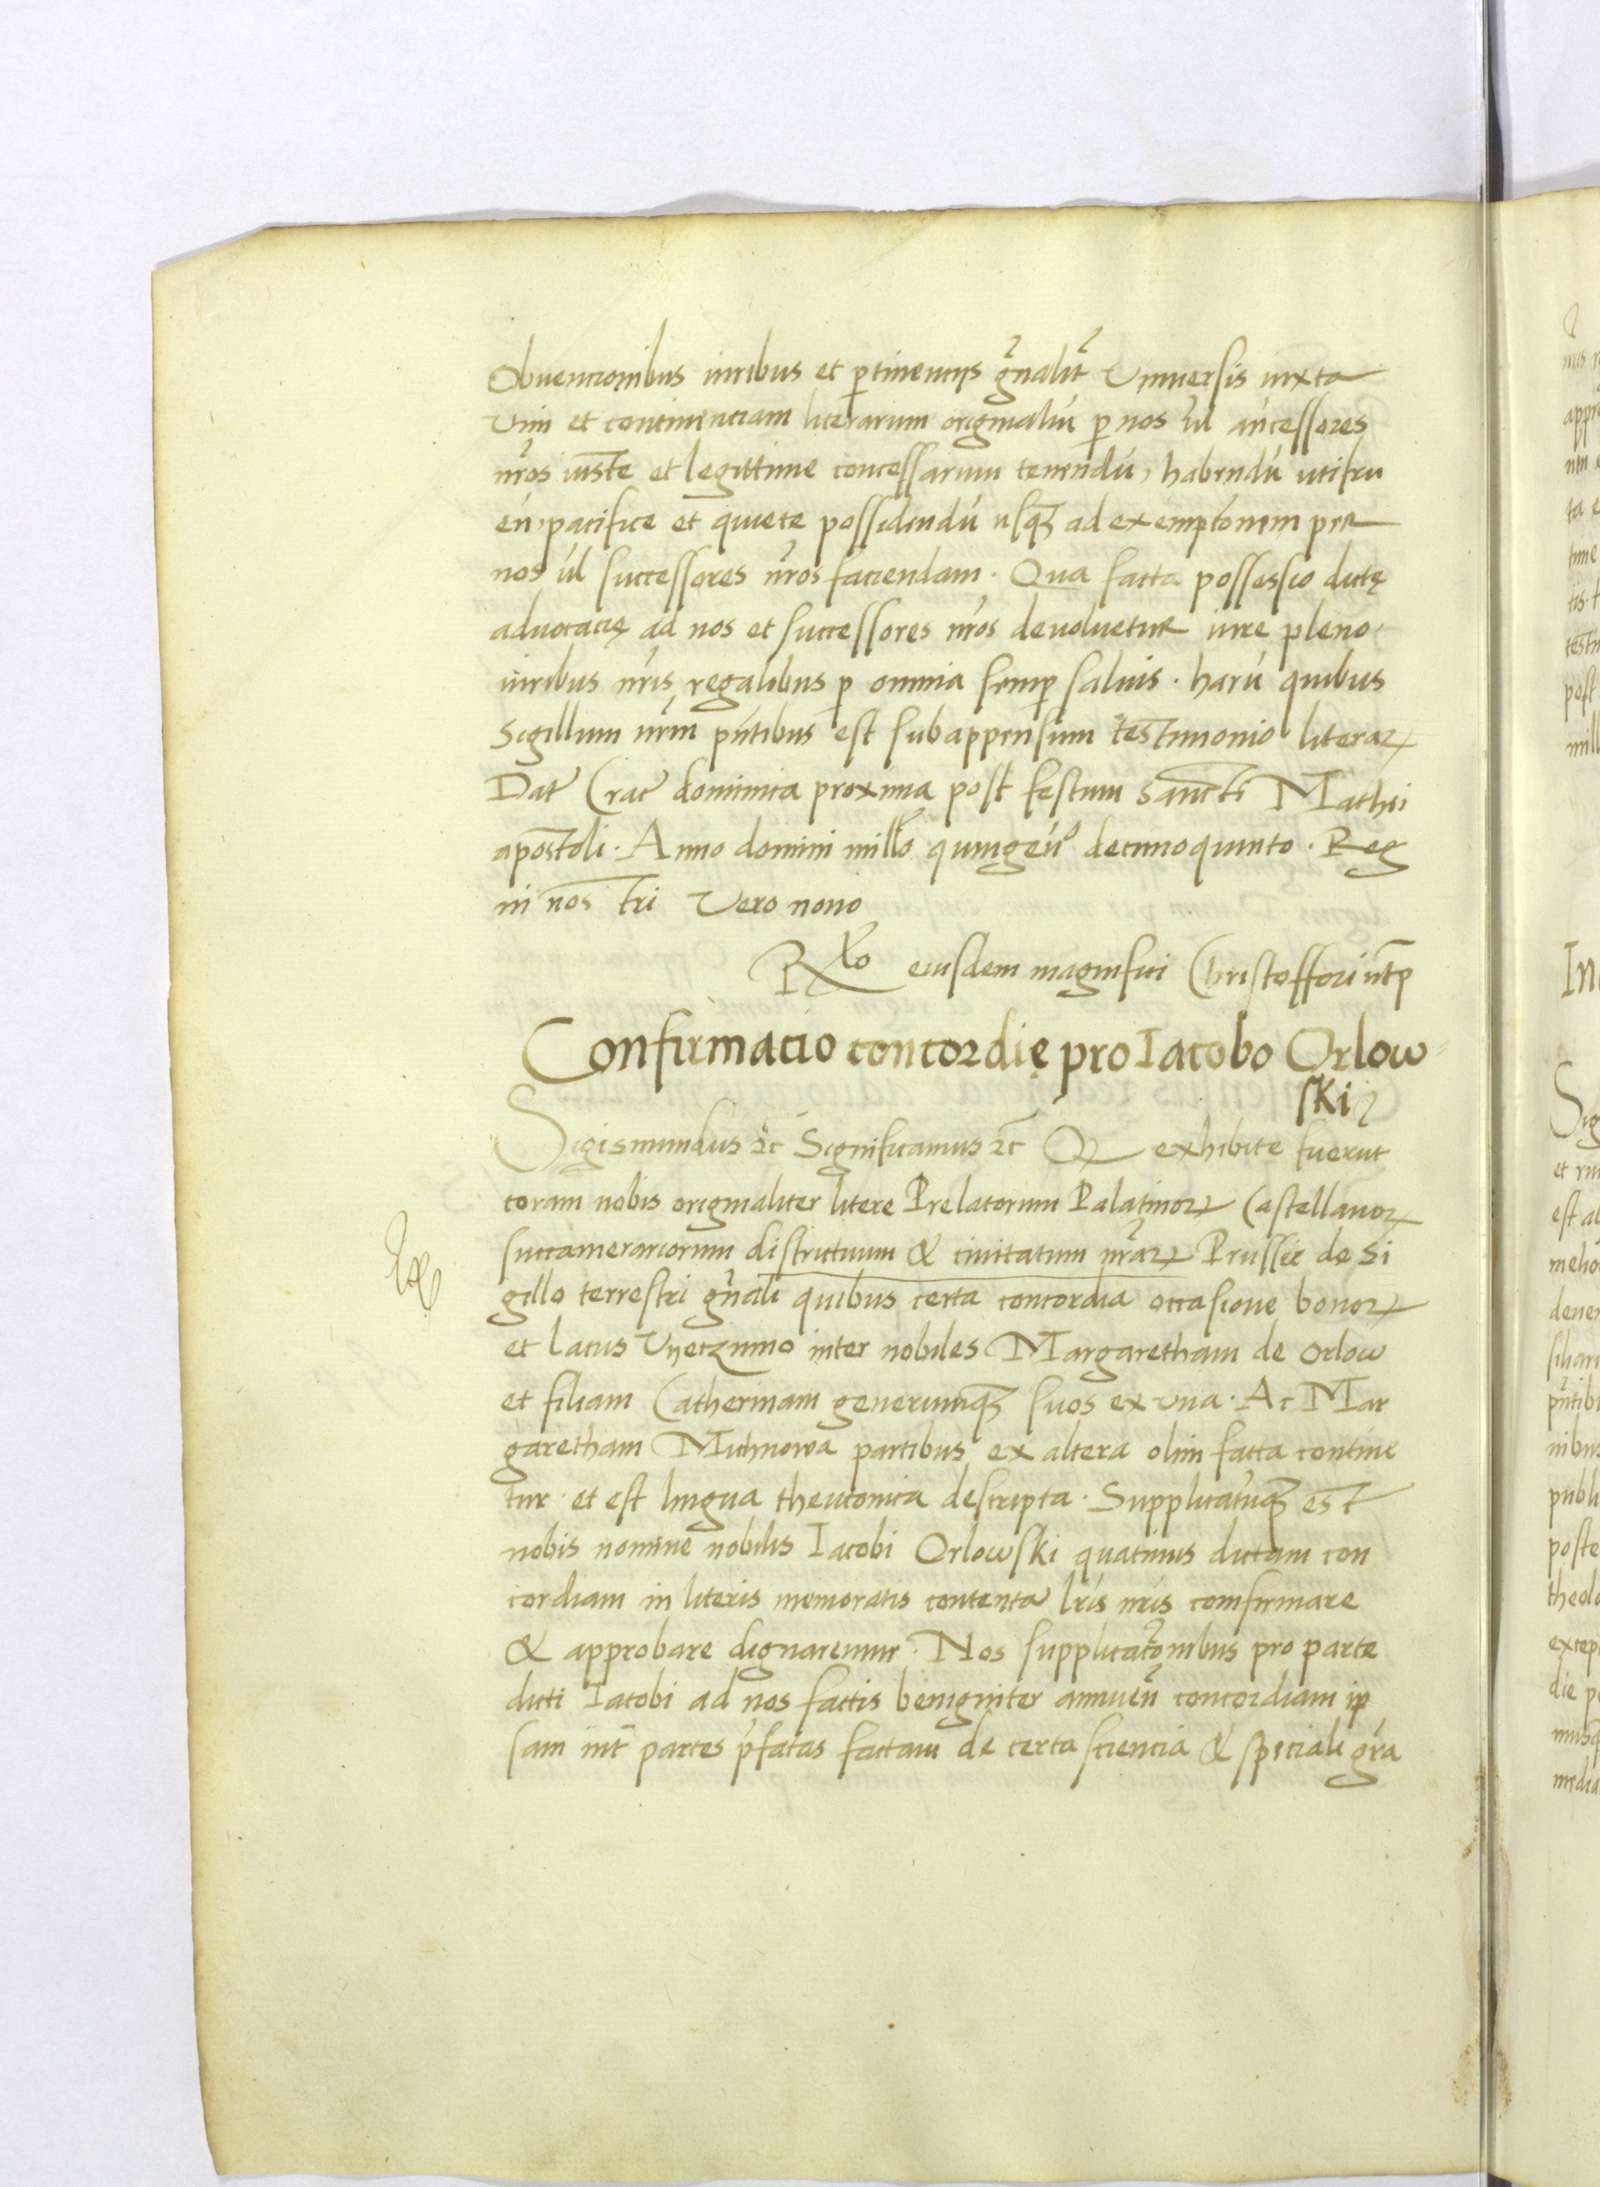 Obuencionibus iuribus et ptinencijs gn̄alit̄ Vniuersis iuxta
Vim et continenciam literarum originaliū p nos ūl an̄cessores
nr̄os iuste et legittime concessarum tenendū, habendū utifru
en̄, pacifice et quiete possidendū usq3 ad exemptōnem per
nos ūl successores nr̄os faciendam. Qua facta possessio dictę
aduocacię ad nos et successores nr̄os deuoluetur iure pleno
iuribus nr̄is regalibus p omnia semp saluis. harū quibus
Sigillum nr̄m pn̄tibus est subappensum testimonio literaꝝ
Dat Crac dominica proxima post festum Sancti Mathei
apostoli. Anno domini millō quingen̄o decimoquinto. Reg
ni nostri Vero nono
Rlo eiusdem magnifici Christoffori ut p
Confirmacio concordię pro Iacobo Orlow=
ski
Sigismundus ꝛc Significamus ꝛc Q exhibite fuerut
coram nobis originaliter litere Prelatorum Palatinoꝝ Castellanoꝝ
succamerariorum districtuum & ciuitatum nr̄aꝝ Prussie de Si
gillo terrestri gn̄ali quibus certa concordia occasione bonoꝝ
et lacus Vyecznno inter nobiles Margaretham de Orlow
et filiam Catherinam generumq3 suos ex una. Ac Mar
garetham Michnowa partibus ex altera olim facta contine
tur et est lingua theutonica descripta. Supplicatūq3 est
nobis nomine nobilis Iacobi Orlowski quatinus dictam con
cordiam in literis memoratis contenta lr̄is nr̄is comfirmare
& approbare dignaremur. Nos supplicatōnibus pro parte
dicti Iacobi ad nos factis benigniter annuen̄ concordiam ip
sam int̄ partes p̄fatas factam de certa sciencia & speciali gr̄a